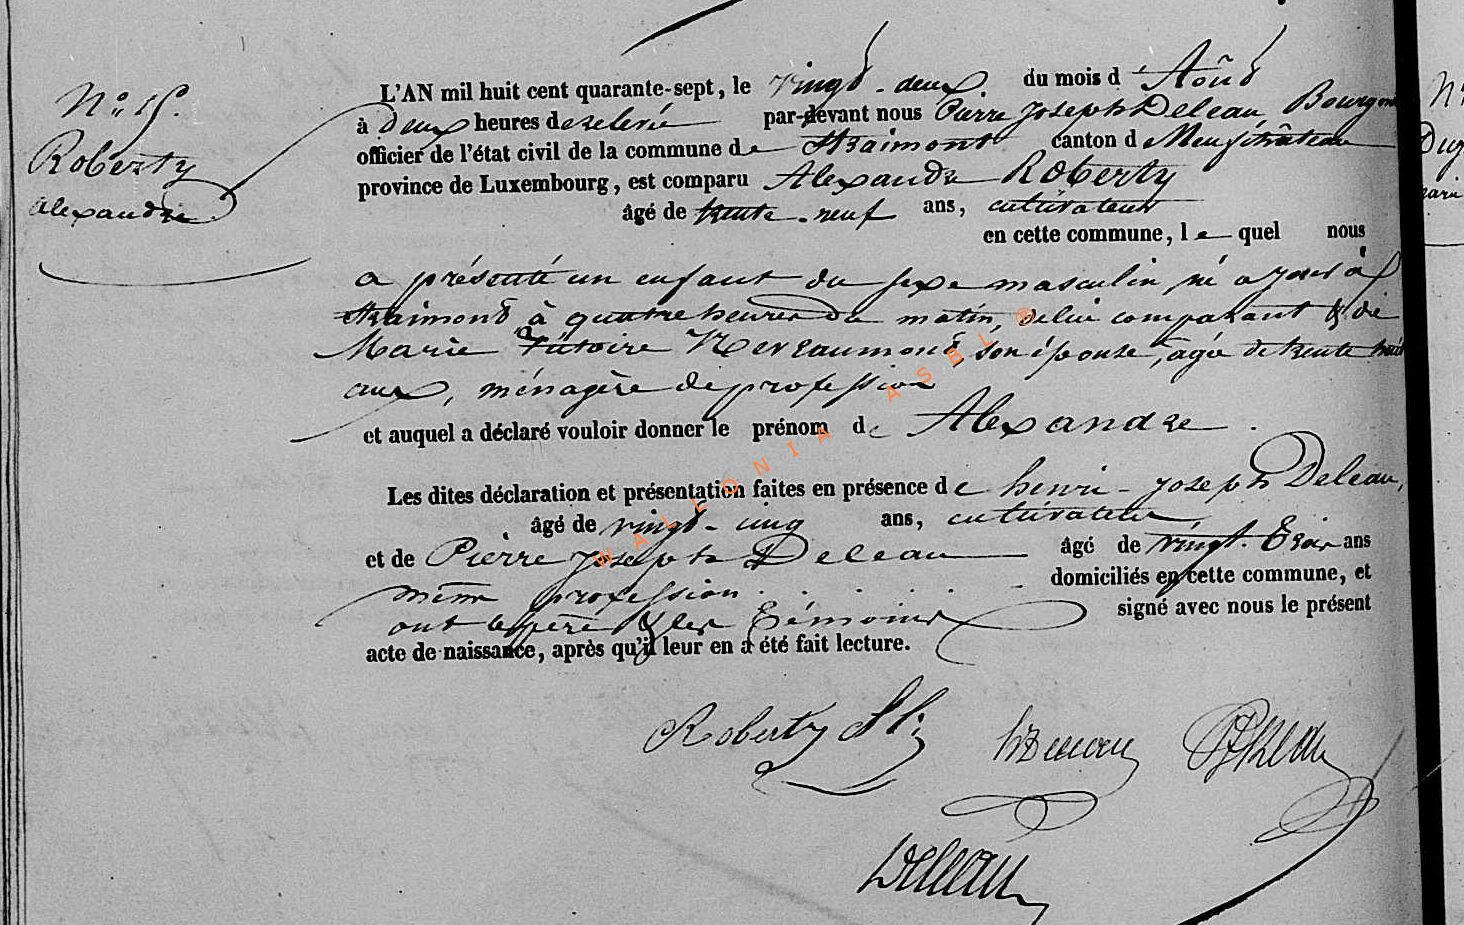 N° 15.
Roberty
alexandre
L'AN mil huit cent quarante-sept, le vingt-deux du mois d'Août
à deux heures de relevée par-devant nous Pierre Joseph Deleau, Bourgm
officier de l'état civil de la commune de Straimont canton d Neufchâteau
province de Luxembourg, est comparu Alexandre Roberty
âgé de trente-neuf ans, cultivateur
en cette commune, le quel nous
a présenté un enfant du sexe masculin, né à
Straimont, à quatre heures du matin, de lui comparant & de
Marie Nevraumont, son épouse, âgée de trente huit
ans, ménagère de profession
et auquel a déclaré vouloir donner le prénom de Alexandre.
Les dites déclaration et présentation faites en présence de henri-Joseph Deleau,
âgé de vingt-cinq ans, cultivateur
et de Pierre Joseph Deleau âgé de vingt-trois ans
même profession domiciliés en cette commune, et
ont le père & les témoins signé avec nous le présent
acte de naissance, après qu'il leur en a été fait lecture.
Roberty
Deleau
WALLONIA ASBL ©